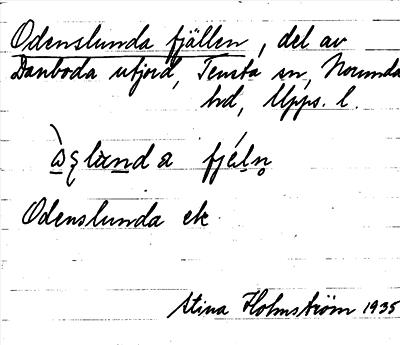 Odenslunda fjällen, del av
Danboda utjord, Tensta sn, Norunda
hd, Upps. l.
fjäln
Odenslunda ek
Stina Holmström 1935